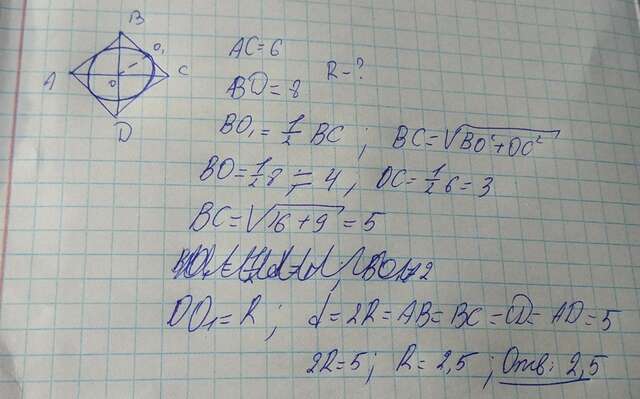 B
O₁
A
O
C
D
AC=6
BD=8
R-?
BO₁=1/2 BC ; BC=√BO²+OC²
BO=1/2 8 = 4, OC=1/2 6=3
BC=√16+9=5
DO₁=R ; d=2R=AB=BC=CD=AD=5
2R=5; R=2,5; Отв: 2,5